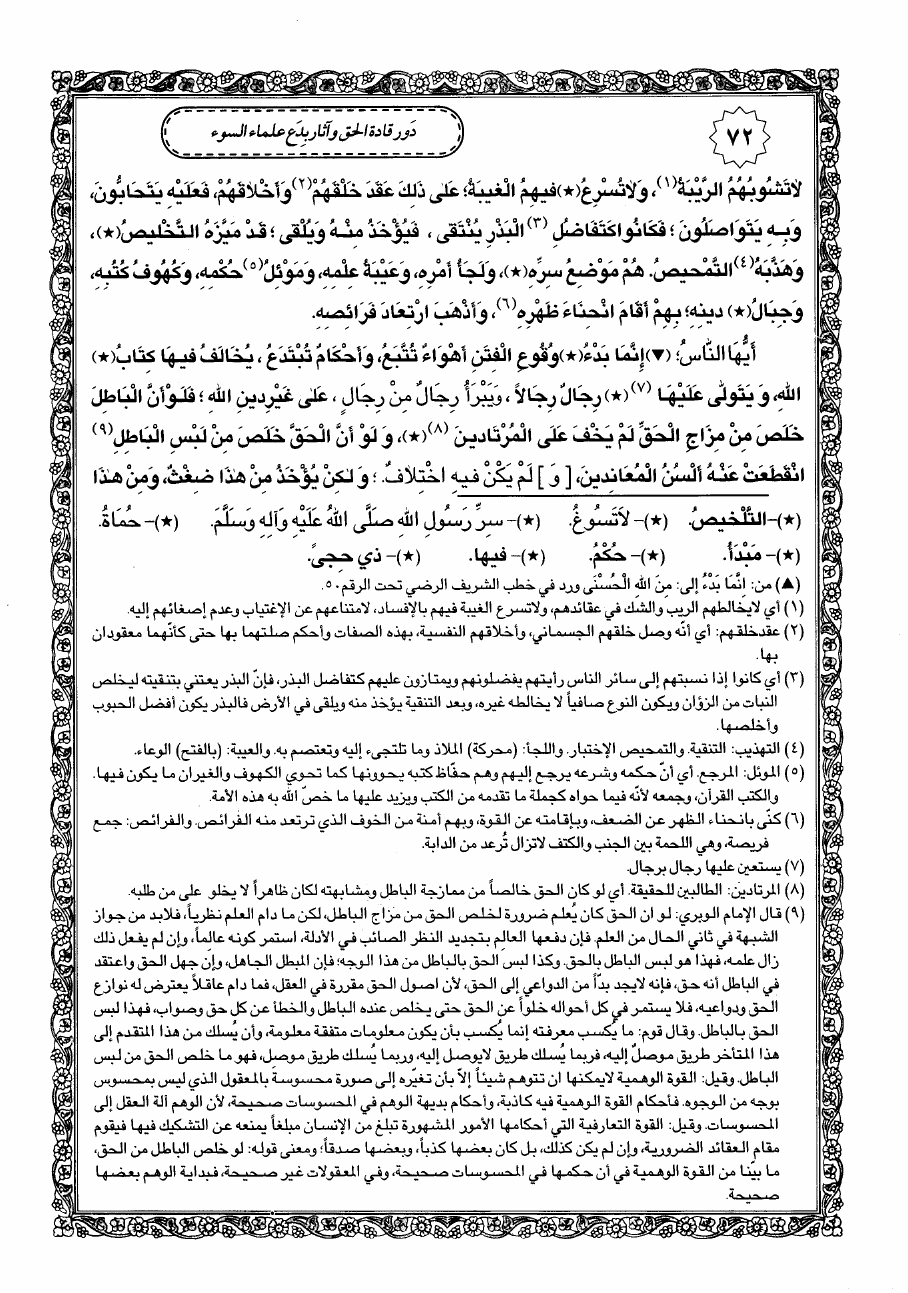 ٧٢
دَور قادة الحق وآثار بِدَع علماء السوء
لاَ تَشُوبُهُمُ الرَّيْبَةُ(١)، وَلاَ تُسْرِعُ(★) فيهِمُ الْغيبَةُ؛ عَلىٰ ذٰلِكَ عَقَدَ خَلْقَهُمْ(٢) وَأَخْلاَقَهُمْ، فَعَلَيْهِ يَتَحَابُّونَ،
وَبِهِ يَتَوَاصَلُونَ؛ فَكَانُوا كَتَفَاضُلِ(٣) الْبَذْرِ يُنْتَقى، فَيُؤْخَذُ مِنْهُ وَيُلْقى؛ قَدْ مَيَّزَهُ التَّخْليصُ(★)،
وَهَذَّبَهُ(٤) التَّمْحيصُ. هُمْ مَوْضِعُ سِرِّهِ(★)، وَلَجَأُ أَمْرِهِ، وَعَيْبَةُ عِلْمِهِ، وَمَوْئِلُ(٥) حُكْمِهِ، وَكُهُوفُ كُتُبِهِ،
وَجِبَالُ(★) دينِهِ؛ بِهِمْ أَقَامَ انْحِنَاءَ ظَهْرِهِ(٦)، وَأَذْهَبَ ارْتِعَادَ فَرَائِصِهِ.
أَيُّهَا النَّاسُ؛ (▼) إِنَّمَا بَدْءُ(★) وُقُوعِ الْفِتَنِ أَهْوَاءٌ تُتَّبَعُ، وَأَحْكَامٌ تُبْتَدَعُ، يُخَالَفُ فيهَا كِتَابُ(★)
اللهِ، وَ يَتَوَلّى عَلَيْهَا(٧)(★) رِجَالٌ رِجَالاً، وَيَبْرَأُ رِجَالٌ مِنْ رِجَالٍ، عَلىٰ غَيْرِ دينِ اللهِ؛ فَلَوْ أَنَّ الْبَاطِلَ
خَلَصَ مِنْ مِزَاجِ الْحَقِّ لَمْ يَخْفَ عَلَى الْمُرْتَادينَ(٨)(★)، وَ لَوْ أَنَّ الْحَقَّ خَلَصَ مِنْ لَبْسِ الْبَاطِلِ(٩)
انْقَطَعَتْ عَنْهُ أَلْسُنُ الْمُعَانِدينَ، [ وَ ] لَمْ يَكُنْ فيهِ اخْتِلاَفٌ؛ وَ لٰكِنْ يُؤْخَذُ مِنْ هٰذَا ضِغْثٌ، وَمِنْ هٰذَا
(★)- التَّلْخيصُ. (★)- لاَ تَسُوغُ. (★)- سِرِّ رَسُولِ اللهِ صَلَّى اللهُ عَلَيْهِ وَآلِهِ وَسَلَّمَ. (★)- حُمَاةُ.
(★)- مَبْدَأُ. (★)- حُكْمُ. (★)- فيها. (★)- ذي حِجىً.
(▲) من: إِنَّمَا بَدْءُ إلى: مِنَ اللهِ الْحُسْنَى ورد في خطب الشريف الرضي تحت الرقم ٥٠.
(١) أي لا يخالطهم الريب والشك في عقائدهم، ولا تسرع الغيبة فيهم بالإفساد، لامتناعهم عن الإغتياب وعدم إصغائهم إليه.
(٢) عقد خلقهم: أي أنّه وصل خلقهم الجسماني، وأخلاقهم النفسية، بهذه الصفات وأحكم صلتهما بها حتى كأنّهما معقودان
بها.
(٣) أي كانوا إذا نسبتهم إلى سائر الناس رأيتهم يفضلونهم ويمتازون عليهم كتفاضل البذر، فإنّ البذر يعتني بتنقيته ليخلص
النبات من الزؤان ويكون النوع صافياً لا يخالطه غيره، وبعد التنقية يؤخذ منه ويلقى في الأرض فالبذر يكون أفضل الحبوب
وأخلصها.
(٤) التهذيب: التنقية. والتمحيص الإختبار. واللجأ: (محركة) الملاذ وما تلتجىء إليه وتعتصم به. والعيبة: (بالفتح) الوعاء.
(٥) الموئل: المرجع. أي أنّ حكمه وشرعه يرجع إليهم وهم حفّاظ كتبه يحوونها كما تحوي الكهوف والغيران ما يكون فيها.
والكتب القرآن، وجمعه لأنّه فيما حواه كجملة ما تقدمه من الكتب ويزيد عليها ما خصّ الله به هذه الأمة.
(٦) كنّى بانحناء الظهر عن الضعف، وبإقامته عن القوة، وبهم أمنة من الخوف الذي ترتعد منه الفرائص. والفرائص: جمع
فريصة، وهي اللحمة بين الجنب والكتف لا تزال تُرعد من الدابة.
(٧) يستعين عليها رجال برجال.
(٨) المرتادين: الطالبين للحقيقة. أي لو كان الحق خالصاً من ممازجة الباطل ومشابهته لكان ظاهراً لا يخلو على من طلبه.
(٩) قال الإمام الوبري: لو ان الحق كان يُعلم ضرورة لخلص الحق من مزاج الباطل، لكن ما دام العلم نظرياً، فلابد من جواز
الشبهة في ثاني الحال من العلم. فإن دفعها العالم بتجديد النظر الصائب في الأدلة، استمر كونه عالماً، وإن لم يفعل ذلك
زال علمه، فهذا هو لبس الباطل بالحق. وكذا لبس الحق بالباطل من هذا الوجه؛ فإن المبطل الجاهل، وإن جهل الحق واعتقد
في الباطل أنه حق، فإنه لا يجد بدّاً من الدواعي إلى الحق، لأن اصول الحق مقررة في العقل، فما دام عاقلاً يعترض له نوازع
الحق ودواعيه، فلا يستمر في كل أحواله خلواً عن الحق حتى يخلص عنده الباطل والخطأ عن كل حق وصواب، فهذا لبس
الحق بالباطل. وقال قوم: ما يُكسب معرفته إنما يُكسب بأن يكون معلومات متفقة معلومة، وأن يُسلك من هذا المتقدم إلى
هذا المتأخر طريق موصلٌ إليه، فربما يُسلك طريق لا يوصل إليه، وربما يُسلك طريق موصل، فهو ما خلص الحق من لبس
الباطل. وقيل: القوة الوهمية لا يمكنها ان تتوهم شيئاً إلاّ بأن تغيّره إلى صورة محسوسة بالمعقول الذي ليس بمحسوس
بوجه من الوجوه. فأحكام القوة الوهمية فيه كاذبة، وأحكام بديهة الوهم في المحسوسات صحيحة، لأن الوهم آلة العقل إلى
المحسوسات. وقيل: القوة التعارفية التي أحكامها الأمور المشهورة تبلغ من الإنسان مبلغاً يمنعه عن التشكيك فيها فيقوم
مقام العقائد الضرورية، وإن لم يكن كذلك، بل كان بعضها كذباً، وبعضها صدقاً؛ ومعنى قوله: لو خلص الباطل من الحق،
ما بينّا من القوة الوهمية في أن حكمها في المحسوسات صحيحة، وفي المعقولات غير صحيحة، فبداية الوهم بعضها
صحيحة.